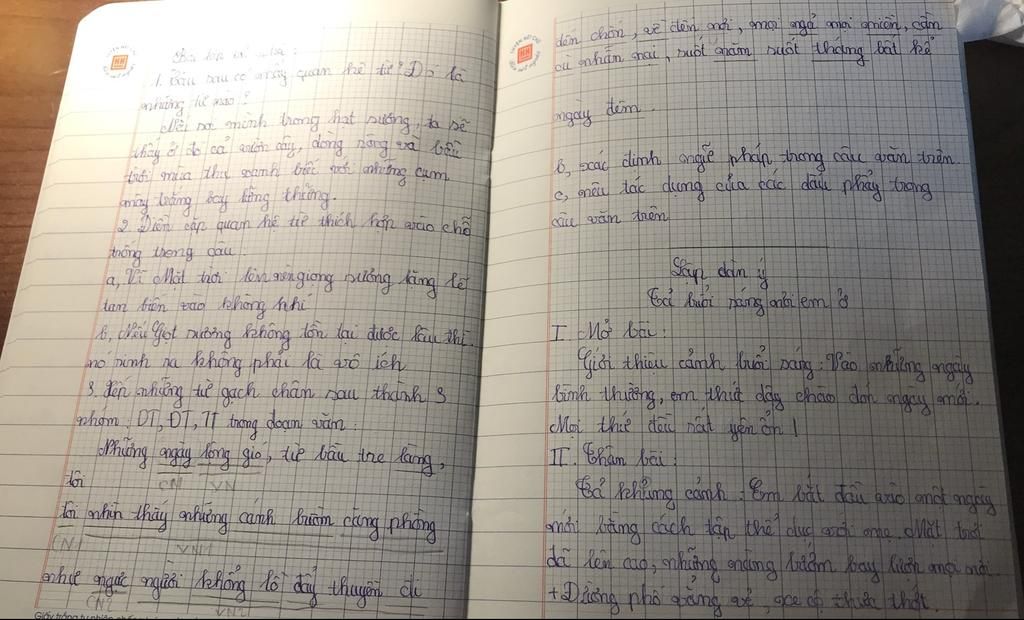 1. Câu sau có mấy quan hệ từ? Đó là
những từ nào?
Nếu soi mình trong hạt sương, ta sẽ
thấy ở đó cả vườn cây, dòng sông và bầu
trời mùa thu xanh biếc với những cụm
mây trắng bay bồng
2. Điền cặp quan hệ từ thích hợp vào chỗ
trống trong câu
a, Vì Mặt trời lên nên giọng sương lặng lẽ
tan biến vào không khí
b, Nếu Giọt sương không tồn tại được lâu thì
nó sinh ra không phải là vô ích
3. xếp những từ gạch chân sau thành 3
nhóm: DT, ĐT, TT trong đoạn văn:
Những ngày lộng gió, từ bầu tre làng,
CN VN
tôi
tôi nhìn thấy những cánh buồm căng phồng
CN1 VN1
như ngực người khổng lồ đẩy thuyền đi
CN2 VN2
đến chốn, về đến nơi, mọi ngả mọi miền, cần
cù nhẫn nại, suốt năm suốt tháng bất kể
ngày đêm.
b, xác định ngữ pháp trong câu văn trên.
c, nêu tác dụng của các dấu phẩy trong
câu văn trên
Lập dàn ý
Tả buổi sáng nơi em ở
I. Mở bài:
Giới thiệu cảnh buổi sáng: Vào những ngày
bình thường, em thức dậy chào đón ngày mới.
Mọi thứ đều rất yên ổn!
II. Thân bài:
Tả khung cảnh: Em bắt đầu vào một ngày
mới bằng cách tập thể dục với mẹ. Mặt trời
đã lên cao, những nàng bướm bay lượn mọi nơi.
+ Đường phố vắng vẻ, xe cộ thưa thớt.